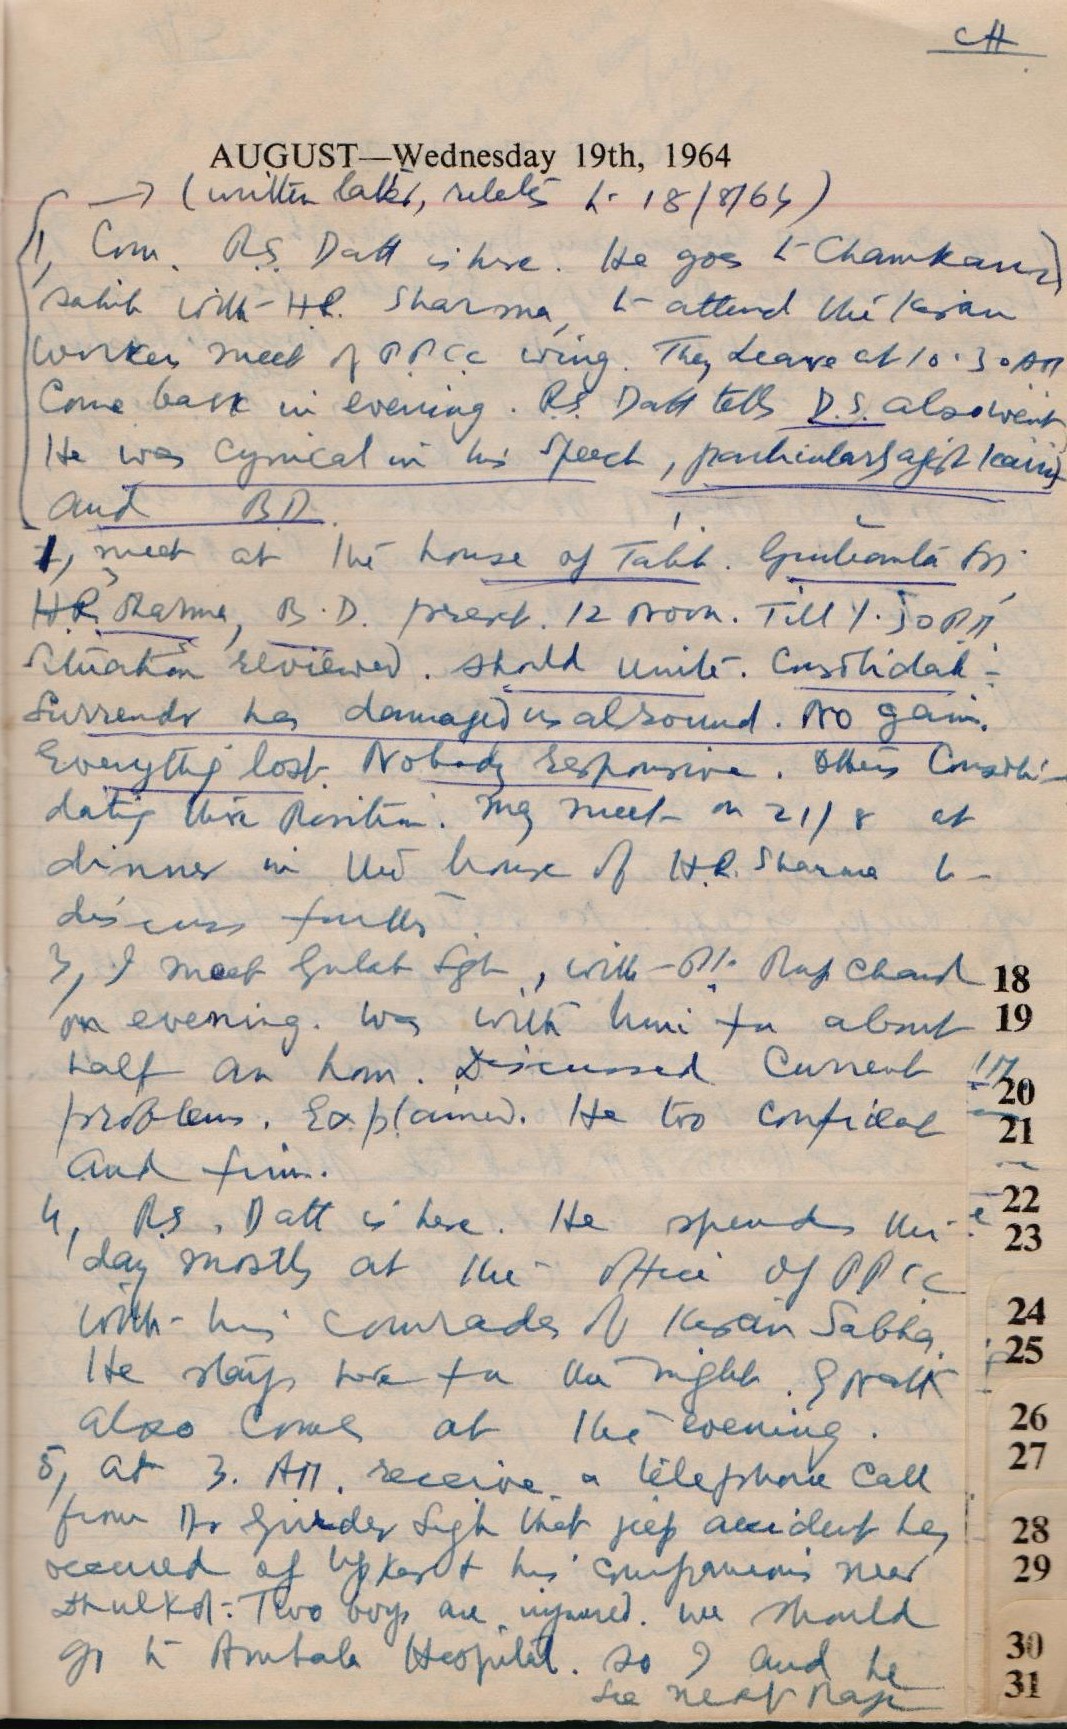 CH
AUGUST—Wednesday 19th, 1964
→ (written later, relates to 18/8/64)
1, Com. R.S. Datt is here. He goes to Chamkaur
sahib with H.R. Sharma, to attend the Kisan
workers meet of PPCC wing. They Leave at 10.30 AM
Come back in evening. R.S. Datt tells D.S. also went
He was Cynical in his speech, particularly agst
and BD.
2, meet at the house of Talib. Gurbanta Si
H.R. Sharma, B.D. present. 12 noon. Till 1.30 PM
Situation reviewed. should unite. Consolidate
Surrender has damaged us alround. No gain.
Everything lost. Nobody responsive. Others Consoli-
dating their Position. may meet on 21/8 at
dinner in the house of H.R. Sharma to
discuss further
3, I meet Gulab Sgh, with Pt. Rup Chand
in evening. Was with him for about
half an hour. Discussed Current
problems. Explained. He too confident
and firm.
4, R.S. Datt is here. He spends the
day mostly at the office of PPCC
with his comrades of Kisan Sabha.
He stays here for the night.
also comes at the evening.
5, At 3. AM. receive a telephone call
from Dr Gurder Sigh that jeep accident has
occured of & his companions near
Dhulkot. Two boys are injured. we should
go to Ambala Hospital. So I and he
see next page
18
19
20
21
22
23
24
25
26
27
28
29
30
31